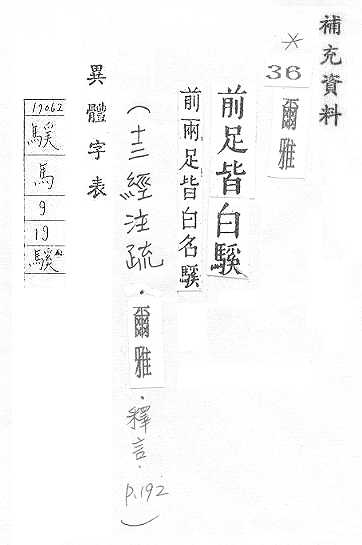 補充資料
＊
36
爾雅
前足皆白騱
前兩足皆白名騱
（十三經注疏．爾雅．釋言．p.192）
異體字表
19062
馬
9
19